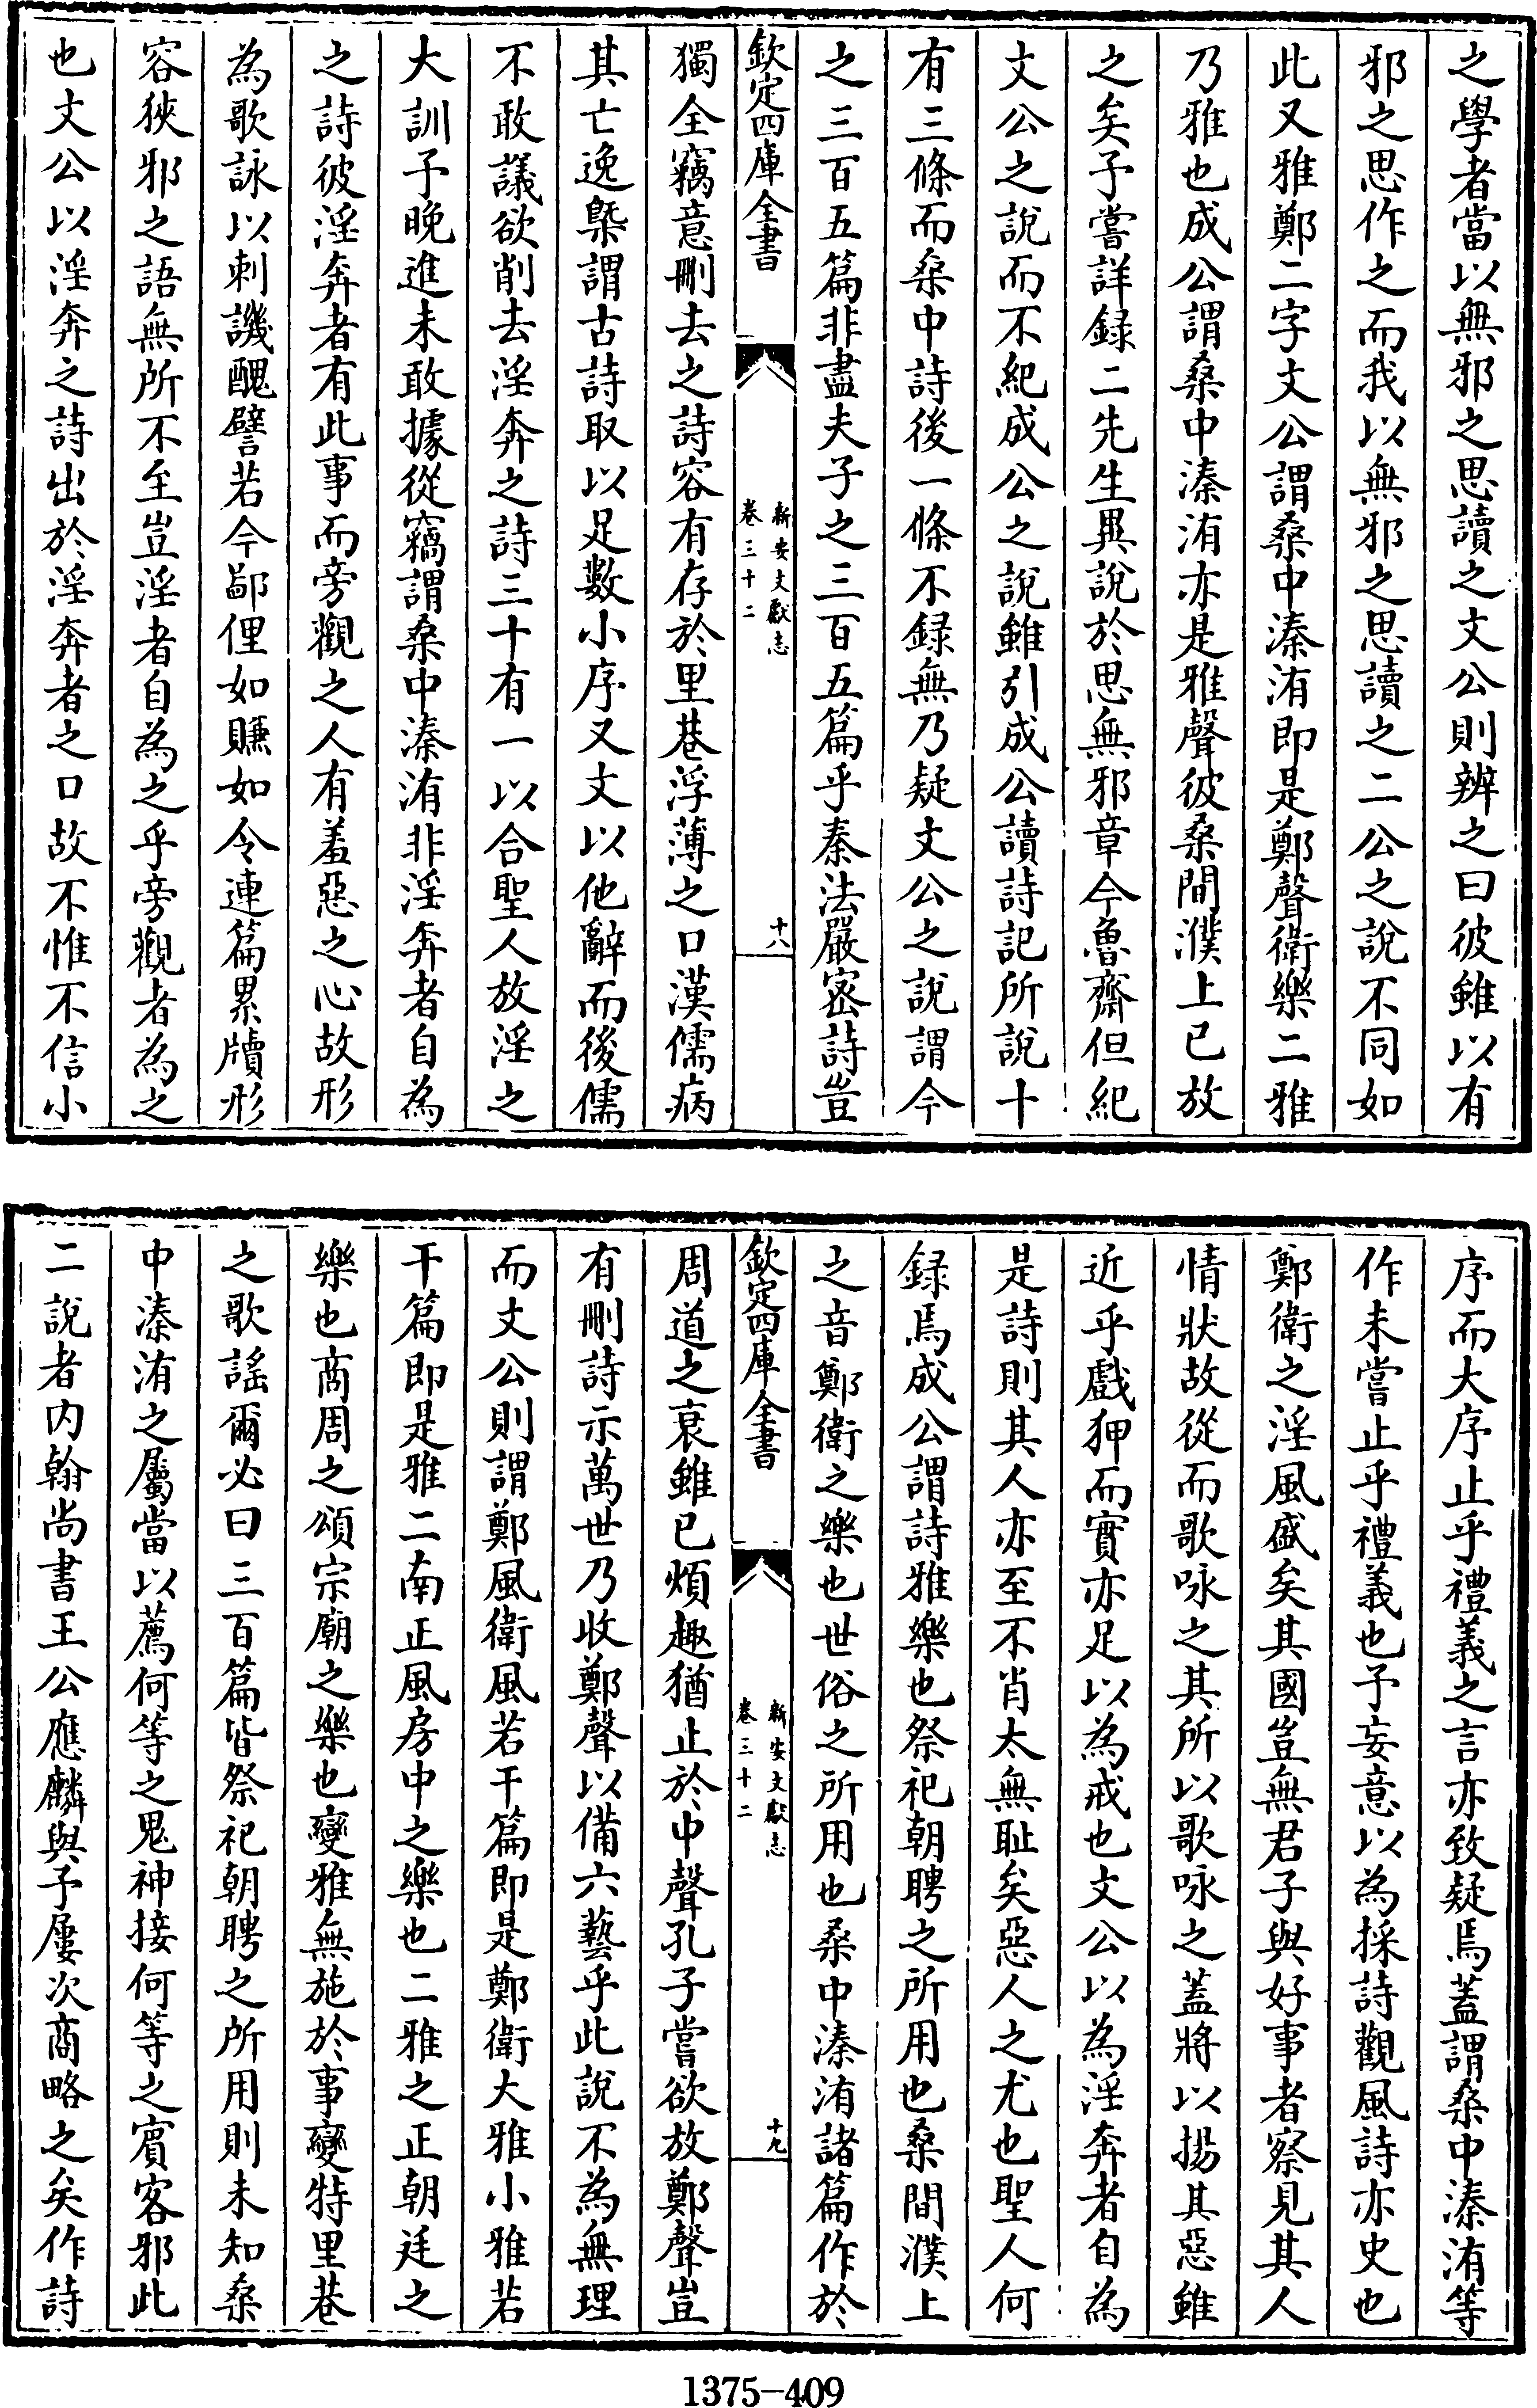 之學者當以無邪之思讀之文公則辨之曰彼雖以有
邪之思作之而我以無邪之思讀之二公之說不同如
此又雅鄭二字文公謂桑中溱洧即是鄭聲衛樂二雅
乃雅也成公謂桑中溱洧亦是雅聲彼桑間濮上已放
之矣予嘗詳録二先生異說於思無邪章今魯齋但紀
文公之說而不紀成公之說雖引成公讀詩記所說十
有三條而桑中詩後一條不録無乃疑文公之說謂今
之三百五篇非盡夫子之三百五篇乎秦法嚴密詩豈
欽定四庫全書
新安文獻志
卷三十二
十八
獨全竊意刪去之詩容有存於里巷浮薄之口漢儒病
其亡逸槩謂古詩取以足數小序又文以他辭而後儒
不敢議欲削去淫奔之詩三十有一以合聖人放淫之
大訓予晚進未敢據從竊謂桑中溱洧非淫奔者自為
之詩彼淫奔者有此事而旁觀之人有羞惡之心故形
為歌詠以刺譏醜譬若今鄙俚如賺如令連篇累牘形
容狹邪之語無所不至豈淫者自為之乎旁觀者為之
也文公以淫奔之詩出於淫奔者之口故不惟不信小
序而大序止乎禮義之言亦致疑焉蓋謂桑中溱洧等
作未嘗止乎禮義也予妄意以為採詩觀風詩亦史也
鄭衛之淫風盛矣其國豈無君子與好事者察見其人
情狀故從而歌咏之其所以歌咏之蓋將以揚其惡雖
近乎戲狎而實亦足以為戒也文公以為淫奔者自為
是詩則其人亦至不肖太無耻矣惡人之尤也聖人何
録焉成公謂詩雅樂也祭祀朝聘之所用也桑間濮上
之音鄭衛之樂也世俗之所用也桑中溱洧諸篇作於
欽定四庫全書
新安文獻志
卷三十二
十九
周道之衰雖已煩趣猶止於中聲孔子嘗欲放鄭聲豈
有刪詩示萬世乃收鄭聲以備六藝乎此說不為無理
而文公則謂鄭風衛風若干篇即是鄭衛大雅小雅若
干篇即是雅二南正風房中之樂也二雅之正朝廷之
樂也商周之頌宗廟之樂也變雅無施於事變特里巷
之歌謠爾必曰三百篇皆祭祀朝聘之所用則未知桑
中溱洧之屬當以薦何等之鬼神接何等之賓客邪此
二說者内翰尚書王公應麟與予屢次商略之矣作詩
1375-409